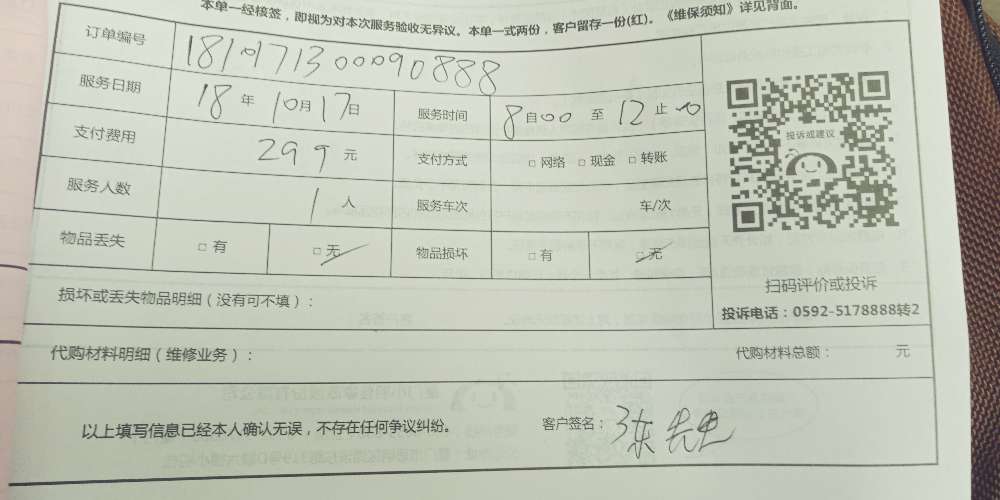 本单一经核签，即视为对本次服务验收无异议。本单一式两份，客户留存一份(红)。《维保须知》详见背面。
订单编号 1810171300090888
服务日期 18 年 10 月 17 日 服务时间 8 自 00 至 12 止 00
支付费用 299 元 支付方式 □ 网络 □ 现金 □ 转账
服务人数 1 人 服务车次 车/次
物品丢失 □ 有 □ 无 物品损坏 □ 有 □ 无
投诉或建议
扫码评价或投诉
投诉电话：0592-5178888转2
损坏或丢失物品明细（没有可不填）：
代购材料明细（维修业务）： 代购材料总额： 元
以上填写信息已经本人确认无误，不存在任何争议纠纷。 客户签名： 先生